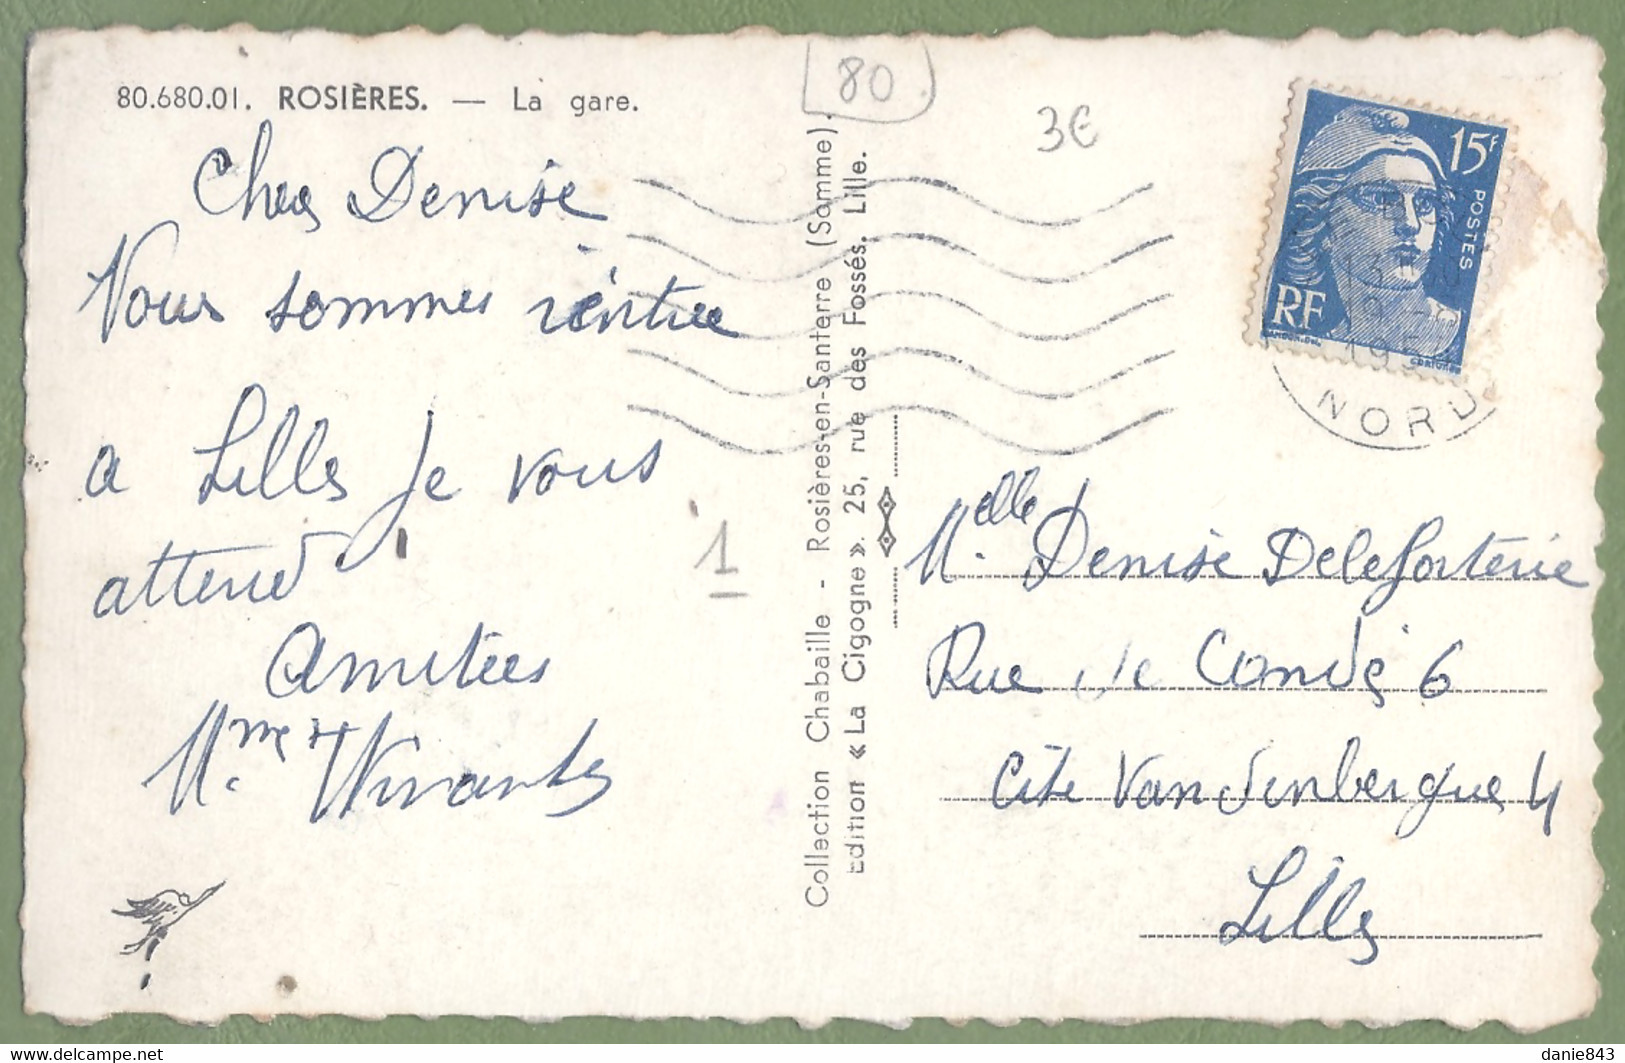 80.680.01. ROSIÈRES. — La gare.
80
3€
Cher Denise
Nous sommes rentrée
a Lille je vous
attend
Amitées
Mme
1
Collection Chabaille - Rosières-en-Santerre (Somme).
Edition « La Cigogne ». 25, rue des Fossés. Lille.
15F
POSTES
RF
GANDON.DEL
NORD
Melle Denise Deleforterie
Rue de Condé 6
Cité Vandenbergue 4
Lille
danie843
delcampe.net